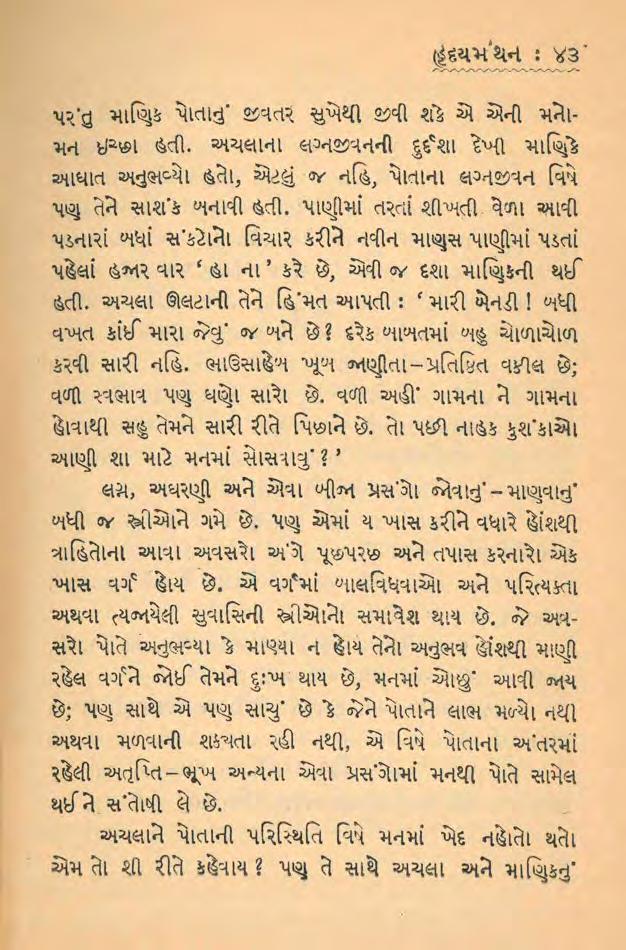 હૃદયમંથન : ૪૩
પરંતુ માણિક પોતાનું જીવતર સુખેથી જીવી શકે એ એની મનો-
મન ઇચ્છા હતી. અચલાના લગ્નજીવનની દુર્દશા દેખી માણિકે
આઘાત અનુભવ્યો હતો, એટલું જ નહિ, પોતાના લગ્નજીવન વિષે
પણ તેને સાશંક બનાવી હતી. પાણીમાં તરતાં શીખતી વેળા આવી
પડનારાં બધાં સંકટોનો વિચાર કરીને નવીન માણુસ પાણીમાં પડતાં
પહેલાં હજાર વાર ‘ હા ના ’ કરે છે, એવી જ દશા માણિકની થઈ
હતી. અચલા ઊલટાની તેને હિંમત આપતી : ‘ મારી બેનડી ! બધી
વખત કાંઈ મારા જેવું જ બને છે? દરેક બાબતમાં બહુ ચોળાચોળ
કરવી સારી નહિ. ભાઉસાહેબ ખૂબ જાણીતા–પ્રતિષ્ઠિત વકીલ છે;
વળી સ્વભાવ પણ ઘણો સારો છે. વળી અહીં ગામના ને ગામના
હોવાથી સહુ તેમને સારી રીતે પિછાને છે. તો પછી નાહક કુશંકાઓ
આણી શા માટે મનમાં સોસવાવું ? ’
લગ્ન, અઘરણી અને એવા બીજા પ્રસંગો જોવાનું–માણવાનું
બધી જ સ્ત્રીઓને ગમે છે. પણ એમાં ય ખાસ કરીને વધારે હોંશથી
ત્રાહિતોના આવા અવસરો અંગે પૂછપરછ અને તપાસ કરનારો એક
ખાસ વર્ગ હોય છે. એ વર્ગમાં બાલવિધવાઓ અને પરિત્યક્તા
અથવા ત્યજાયેલી સુવાસિની સ્ત્રીઓનો સમાવેશ થાય છે. જે અવ-
સરો પોતે અનુભવ્યા કે માણ્યા ન હોય તેનો અનુભવ હોંશથી માણી
રહેલ વર્ગને જોઈ તેમને દુઃખ થાય છે, મનમાં ઓછું આવી જાય
છે; પણ સાથે એ પણ સાચું છે કે જેને પોતાને લાભ મળ્યો નથી
અથવા મળવાની શક્યતા રહી નથી, એ વિષે પોતાના અંતરમાં
રહેલી અતૃપ્તિ–ભૂખ અન્યના એવા પ્રસંગોમાં મનથી પોતે સામેલ
થઈને સંતોષી લે છે.
અચલાને પોતાની પરિસ્થિતિ વિષે મનમાં ખેદ નહોતો થતો
એમ તો શી રીતે કહેવાય ? પણ તે સાથે અચલા અને માણિકનું